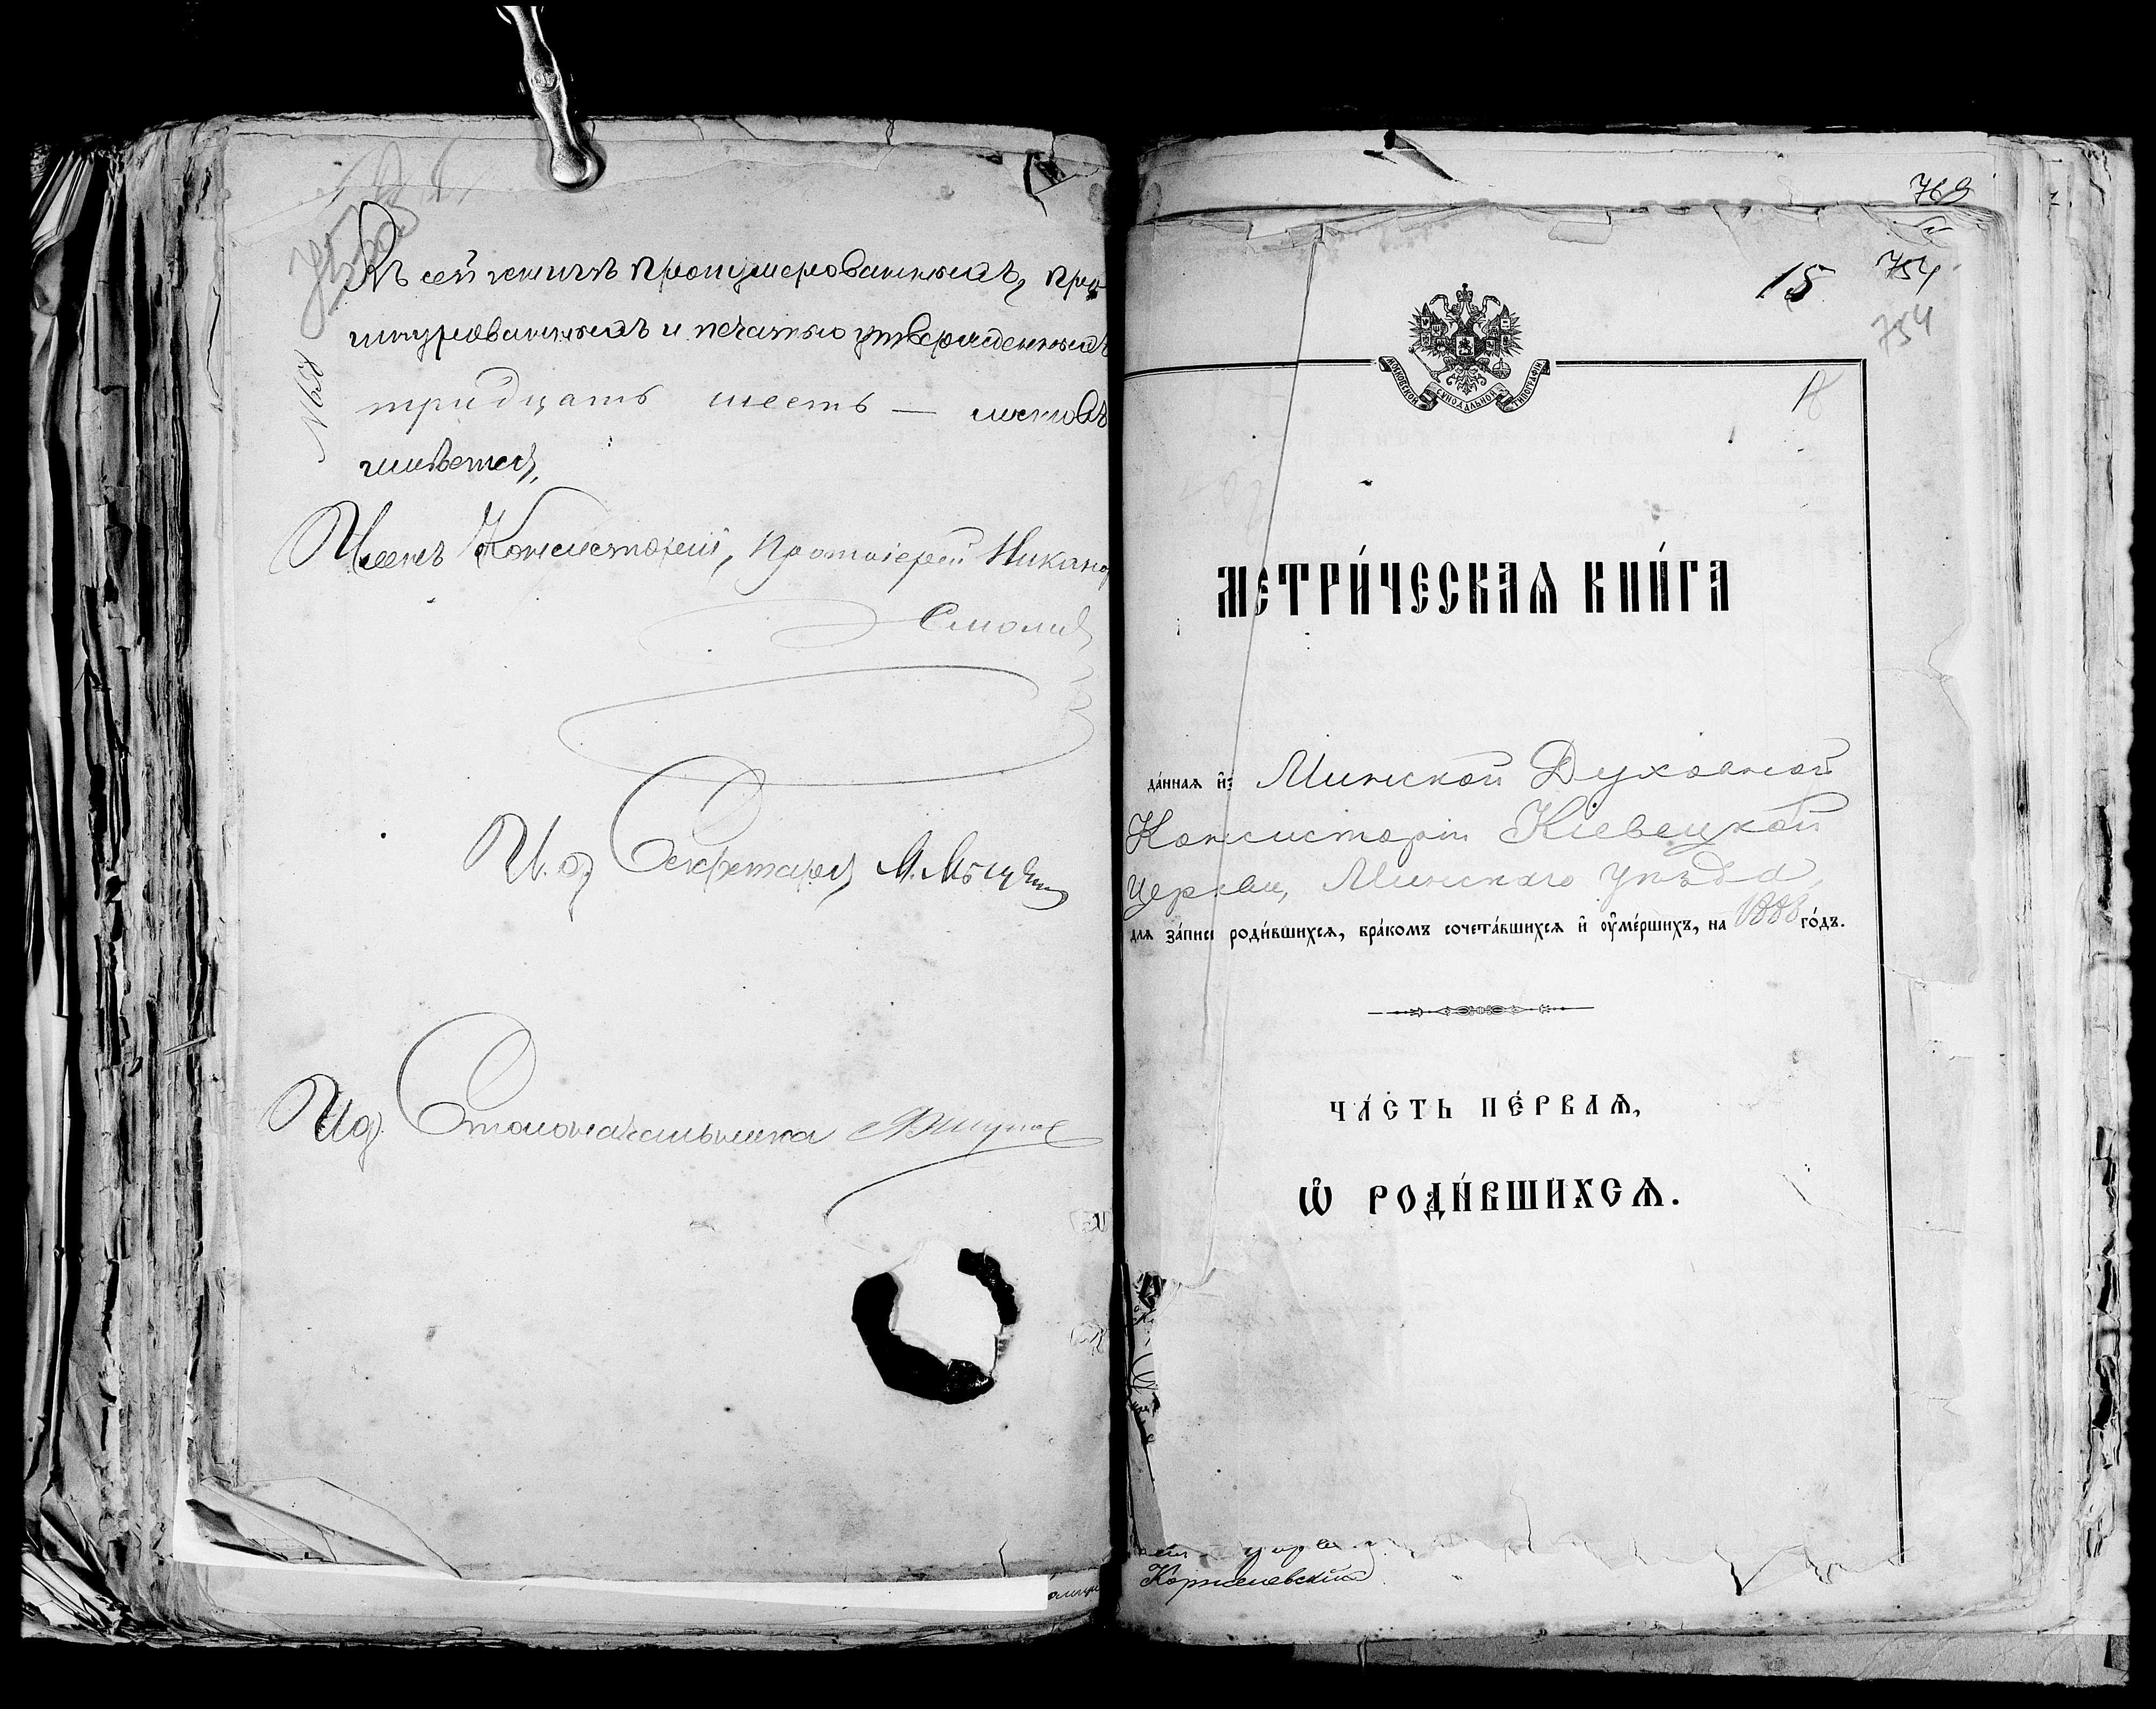 № 658
Въ сей книгѣ пронумерованныхъ, про-
шнурованныхъ и печатью утвержденныхъ
тридцать шесть — листовъ
имѣется,
Членъ Консисторіи, Протоіерей Никано
Смолич
И. д. Секретаря М.
И д. Столоначальника
769
754
15
754
МОСКОВСКОЙ СѴНОДАЛЬНОЙ ТИПОГРАФІИ
МЕТРИ́ЧЕСКАѦ КНИ́ГА
да́ннаѧ и҆з̾ Минской Духовной
Консисторіи Кіевецкой
Церкви, Минскаго уѣзда,
для за́писи роди́вшихсѧ, бра́комъ сочета́вшихсѧ и҆ оу҆ме́ршихъ, на 1888 го́дъ.
ЧА́СТЬ ПЕ́РВАѦ,
Ѡ҆ РОДИ́ВШИХСѦ.
Корженевскій